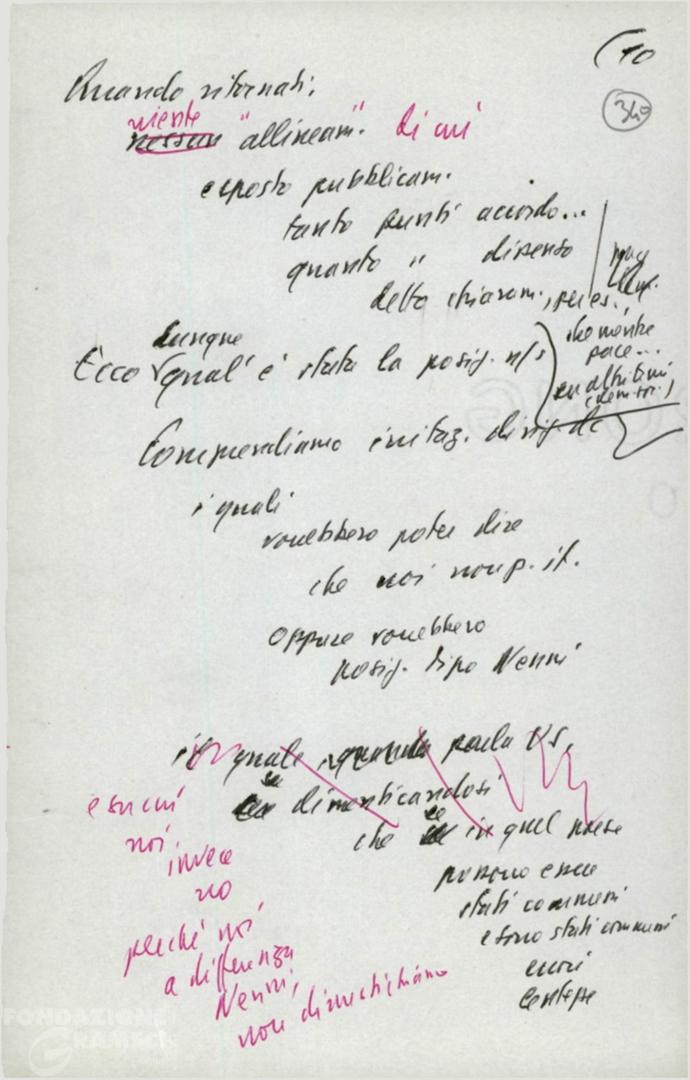 (10
340
Quando ritornati.
niente
nessun "allineam." Di cui
esposto pubblicam.
tanto punti accordo...
quanto " dissenso
detto chiaram., per es.
che mentre
pace...
dunque
Ecco qual'è stata la posiz. n/s
Comprendiamo irritaz. dirig. dc
i quali
vorrebbero poter dire
che noi non p. it.
oppure vorrebbero
posiz. tipo Nenni
il quale, quando parla US,
dimenticandosi
che se in quel paese
possono essere
stati commessi
e sono stati commessi
errori
e su cui
noi
invece
no
perché noi
a differenza
Nenni,
non dimentichiamo
FONDAZIONE
GRAMSCI